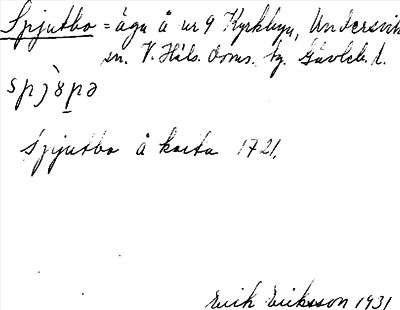 Spjutbo = äga å nr 9 Kyrkbyn, Undersvik
sn. V. Häls. doms. tg. Gävleb. l.
Spjutbo å karta 1721.
Erik Eriksson 1931